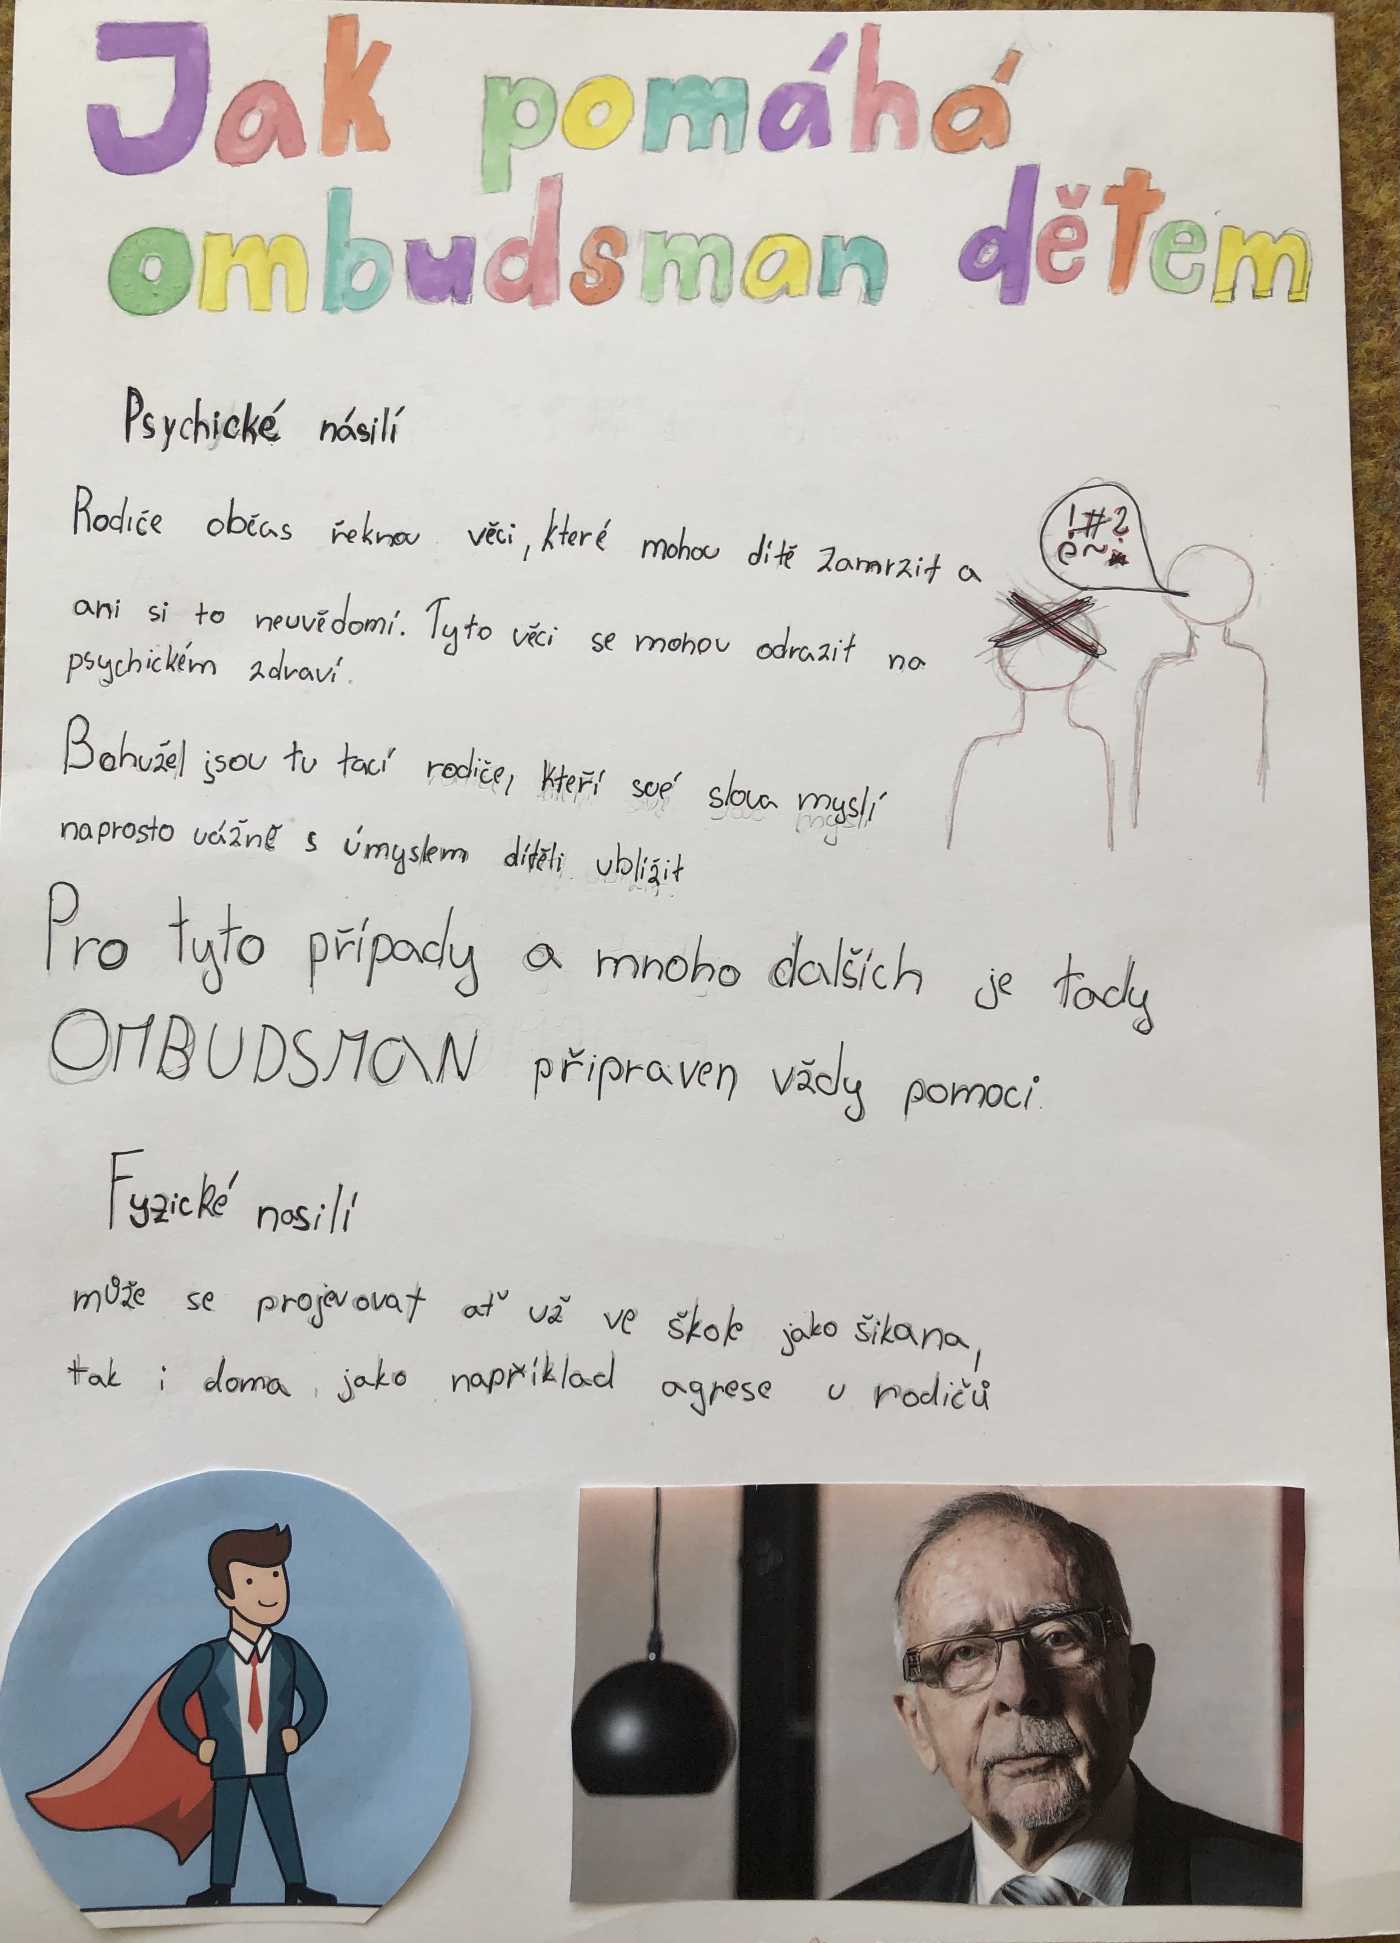 Jak pomáhá
ombudsman dětem
Psychické násilí
Rodiče občas řeknou věci, které mohou dítě zamrzit a
ani si to neuvědomí. Tyto věci se mohou odrazit na
psychickém zdraví.
!#?
@~*
Bohužel jsou tu tací rodiče, kteří své slova myslí
naprosto vážně s úmyslem dítěli ublížit
Pro tyto případy a mnoho dalších je tady
OMBUDSMAN připraven vždy pomoci.
Fyzické nasilí
může se projevovat ať už ve škole jako šikana,
tak i doma, jako například agrese u rodičů